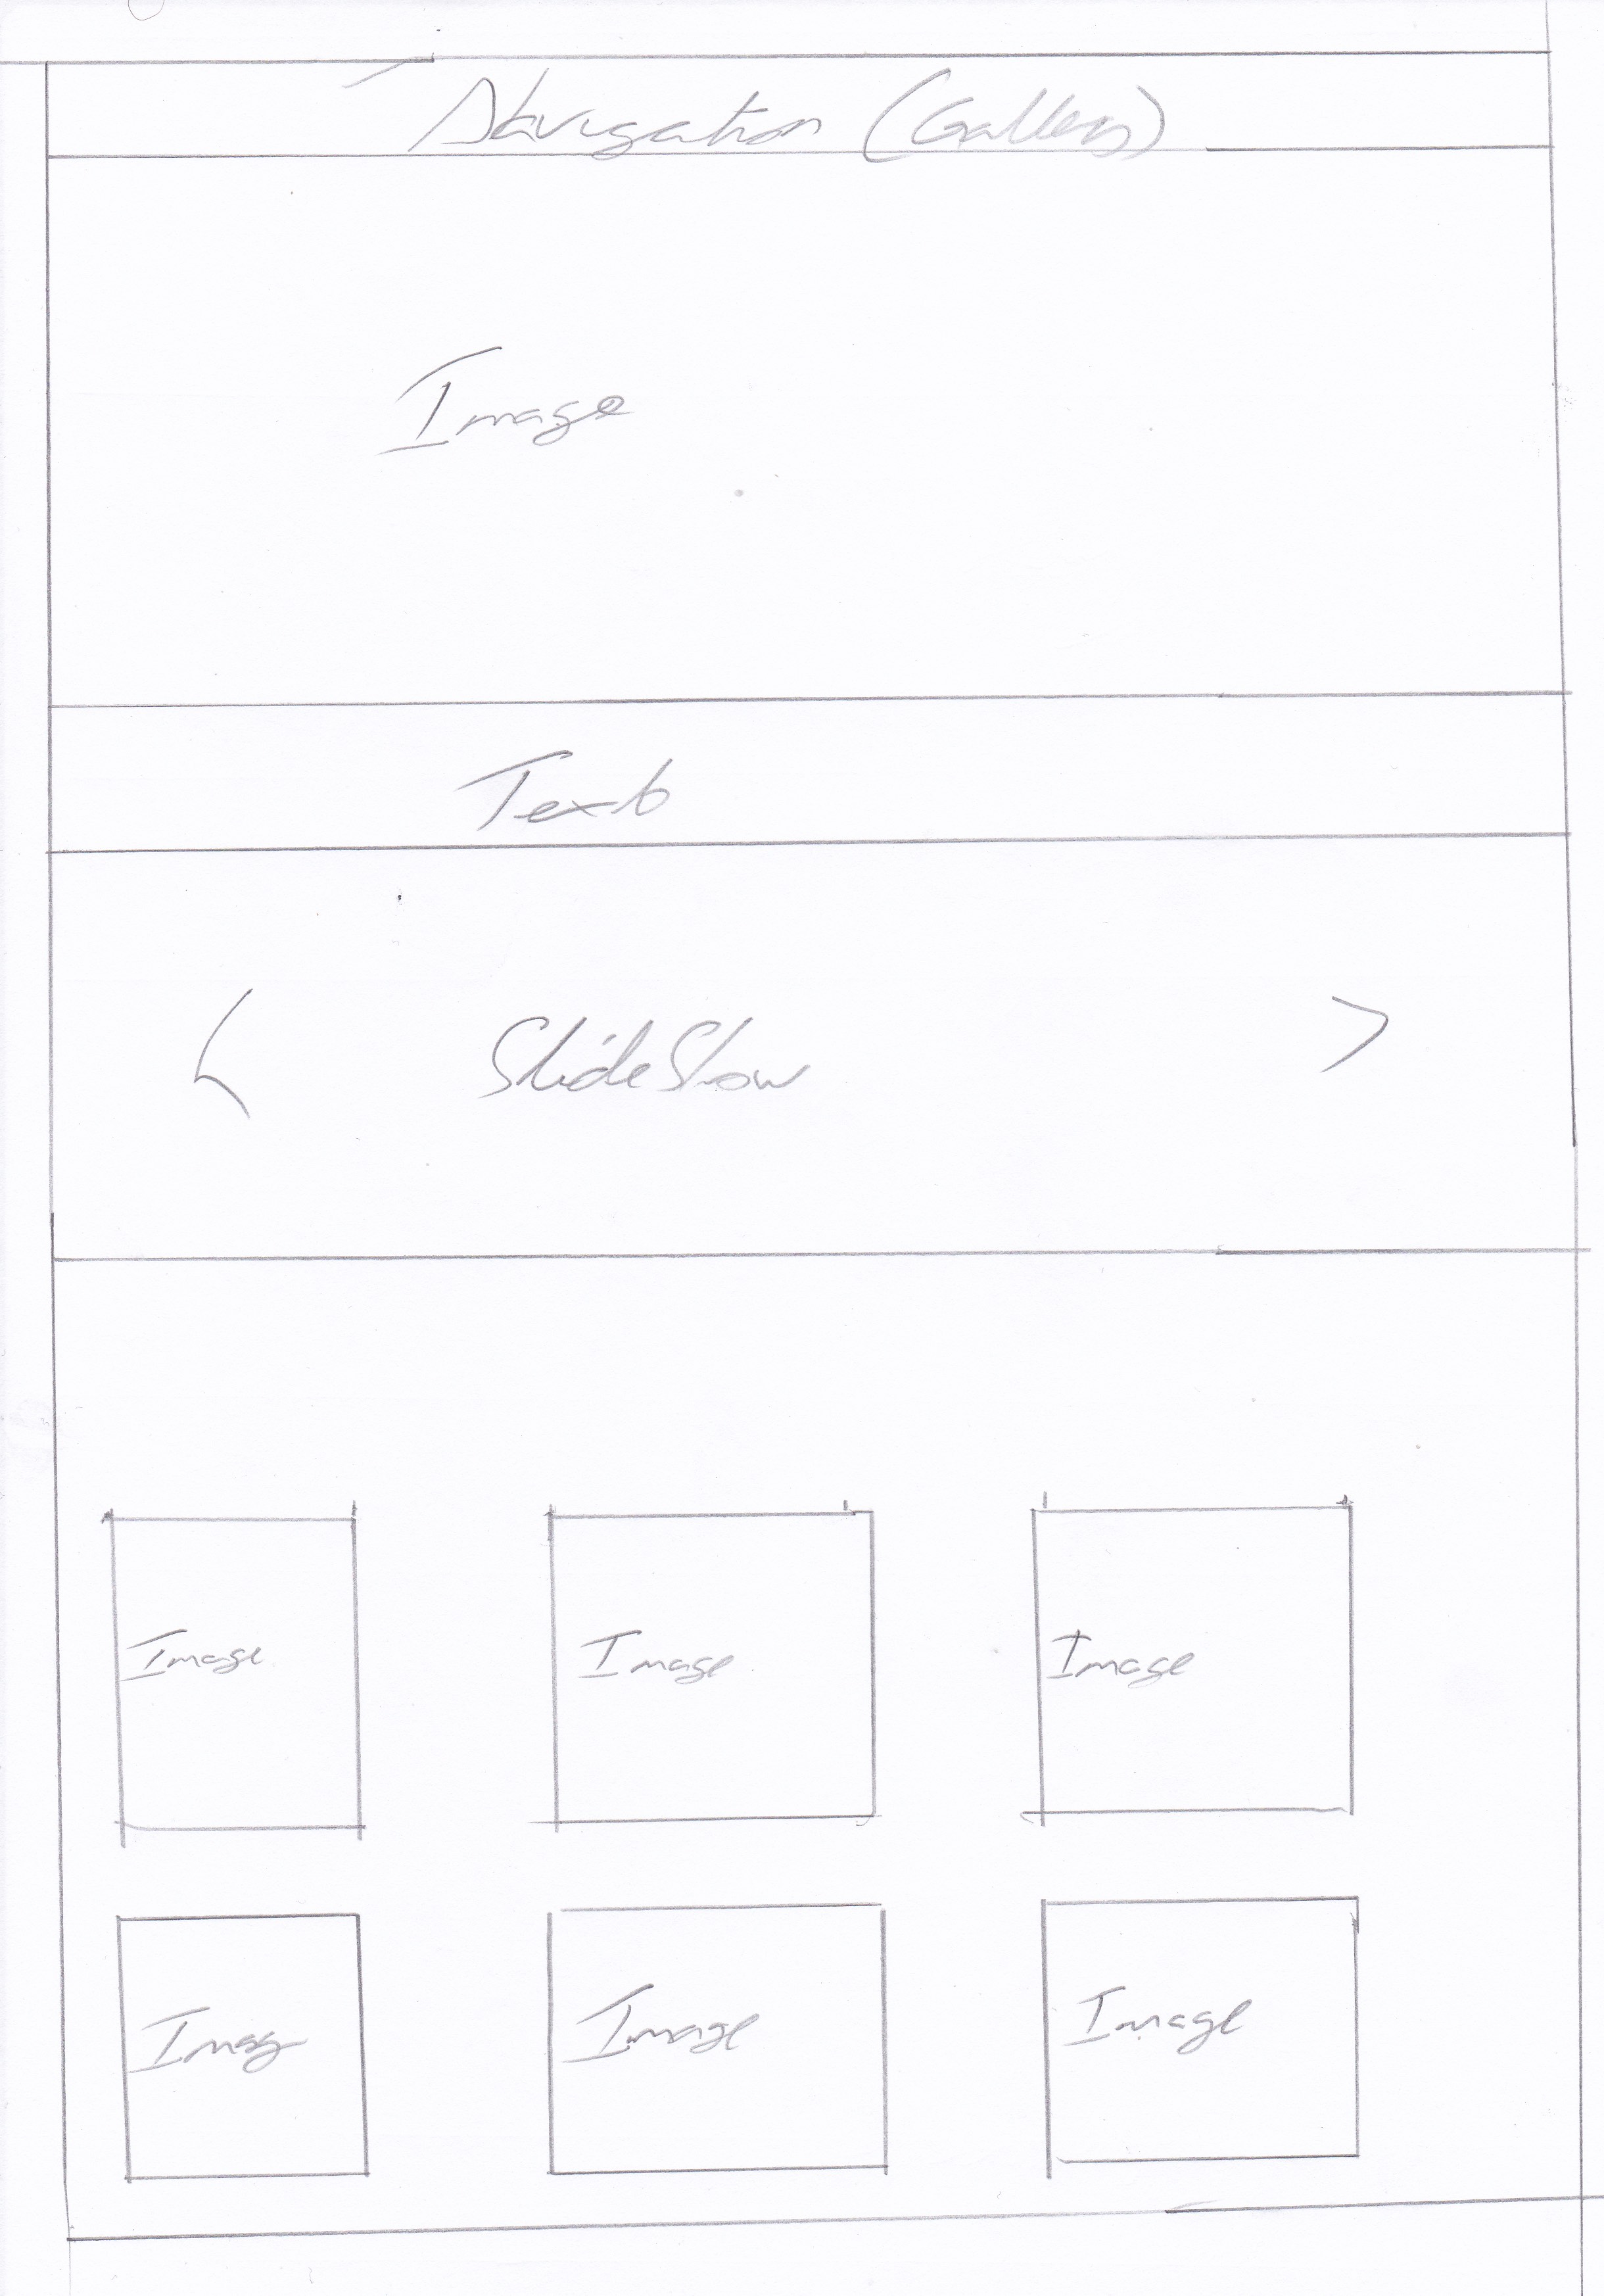 Navigation (Gallery)
Image
Text
< SlideShow >
Image Image Image
Imag Image Image